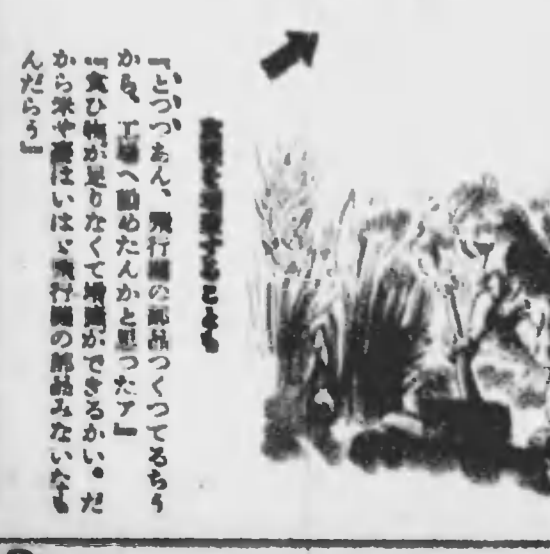 『とつつあん、飛行機の部品つくつてるちう
から、工場へ勤めたんかと思つたア』
『食ひ物が足りなくて増産ができるかい。だ
から米や麥はいはゞ飛行機の部品みないなも
んだらう』